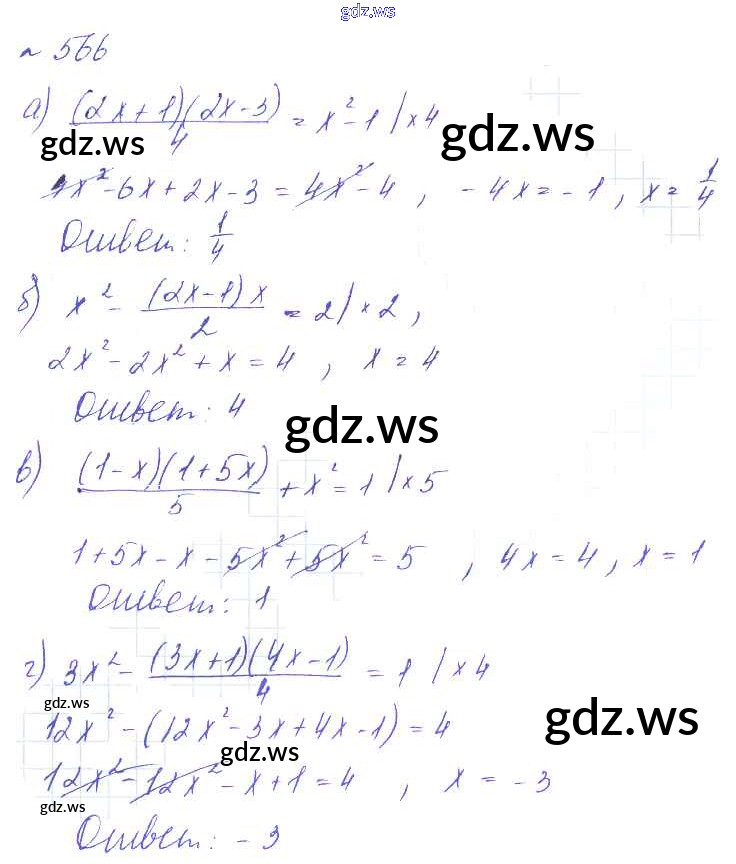 gdz.ws
№ 566
а) (2x+1)(2x-3)/4 = x²-1 | ×4
gdz.ws gdz.ws
4x²-6x+2x-3 = 4x²-4, -4x = -1, x = 1/4
Ответ: 1/4
gdz.ws
б) x² - (2x-1)x/2 = 2 | ×2,
2x²-2x²+x = 4, x = 4
Ответ: 4
gdz.ws
в) (1-x)(1+5x)/5 + x² = 1 | ×5
1+5x-x-5x²+5x² = 5, 4x = 4, x = 1
Ответ: 1
г) 3x² - (3x+1)(4x-1)/4 = 1 | ×4
gdz.ws
12x²-(12x²-3x+4x-1) = 4
gdz.ws gdz.ws
12x²-12x²-x+1 = 4, x = -3
gdz.ws
Ответ: -3